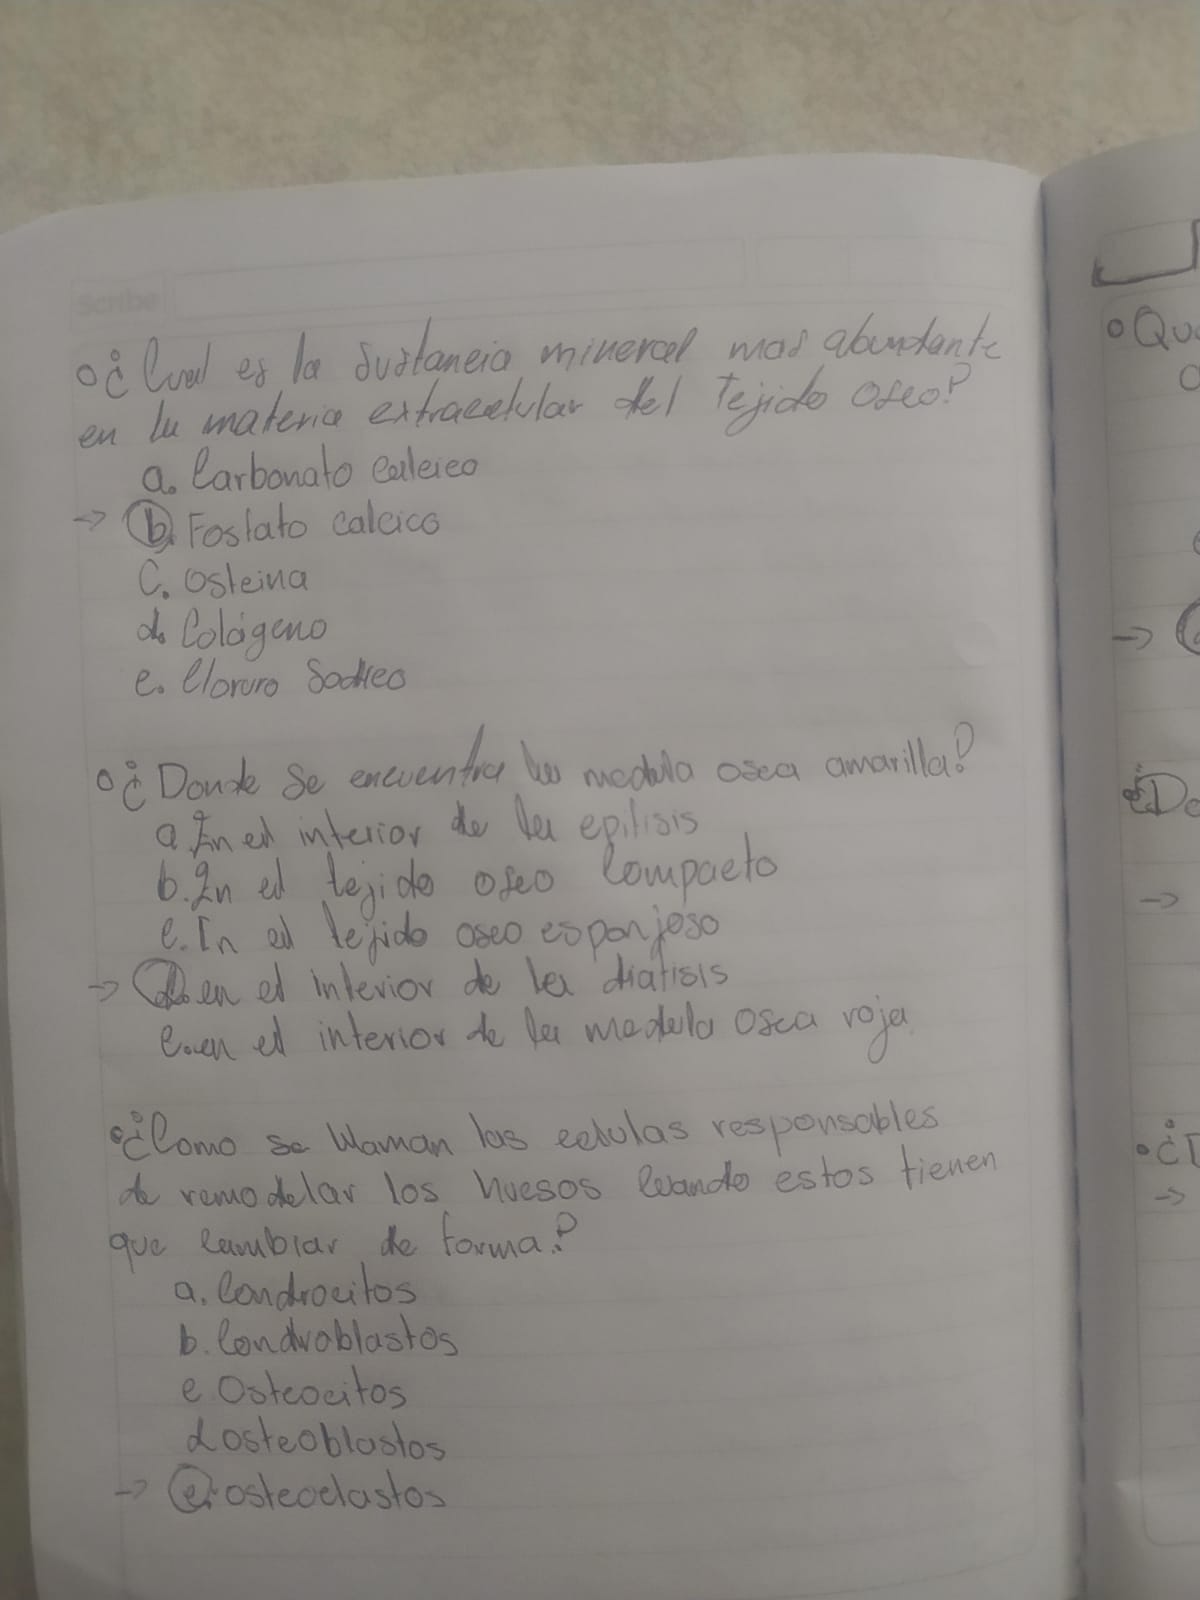 Scribe
¿Cual es la sustancia mineral mas abundante
en la materia extracelular del Tejido Oseo?
a. Carbonato Calcico
→ b. Fosfato calcico
C. Osteina
d. Colágeno
e. Cloruro Sodico
¿Donde Se encuentra la medula osea amarilla?
a In el interior de la epifisis
b. In el tejido oseo Compacto
c. In el tejido oseo esponjoso
→ D. en el interior de la diafisis
e. en el interior de la medula Osea roja
¿Como se llaman las celulas responsables
de remodelar los huesos cuando estos tienen
que cambiar de forma?
a. Condrocitos
b. Condroblastos
c Osteocitos
d osteoblastos
→ e. osteoclastos
Qu
→
De
→
¿
→